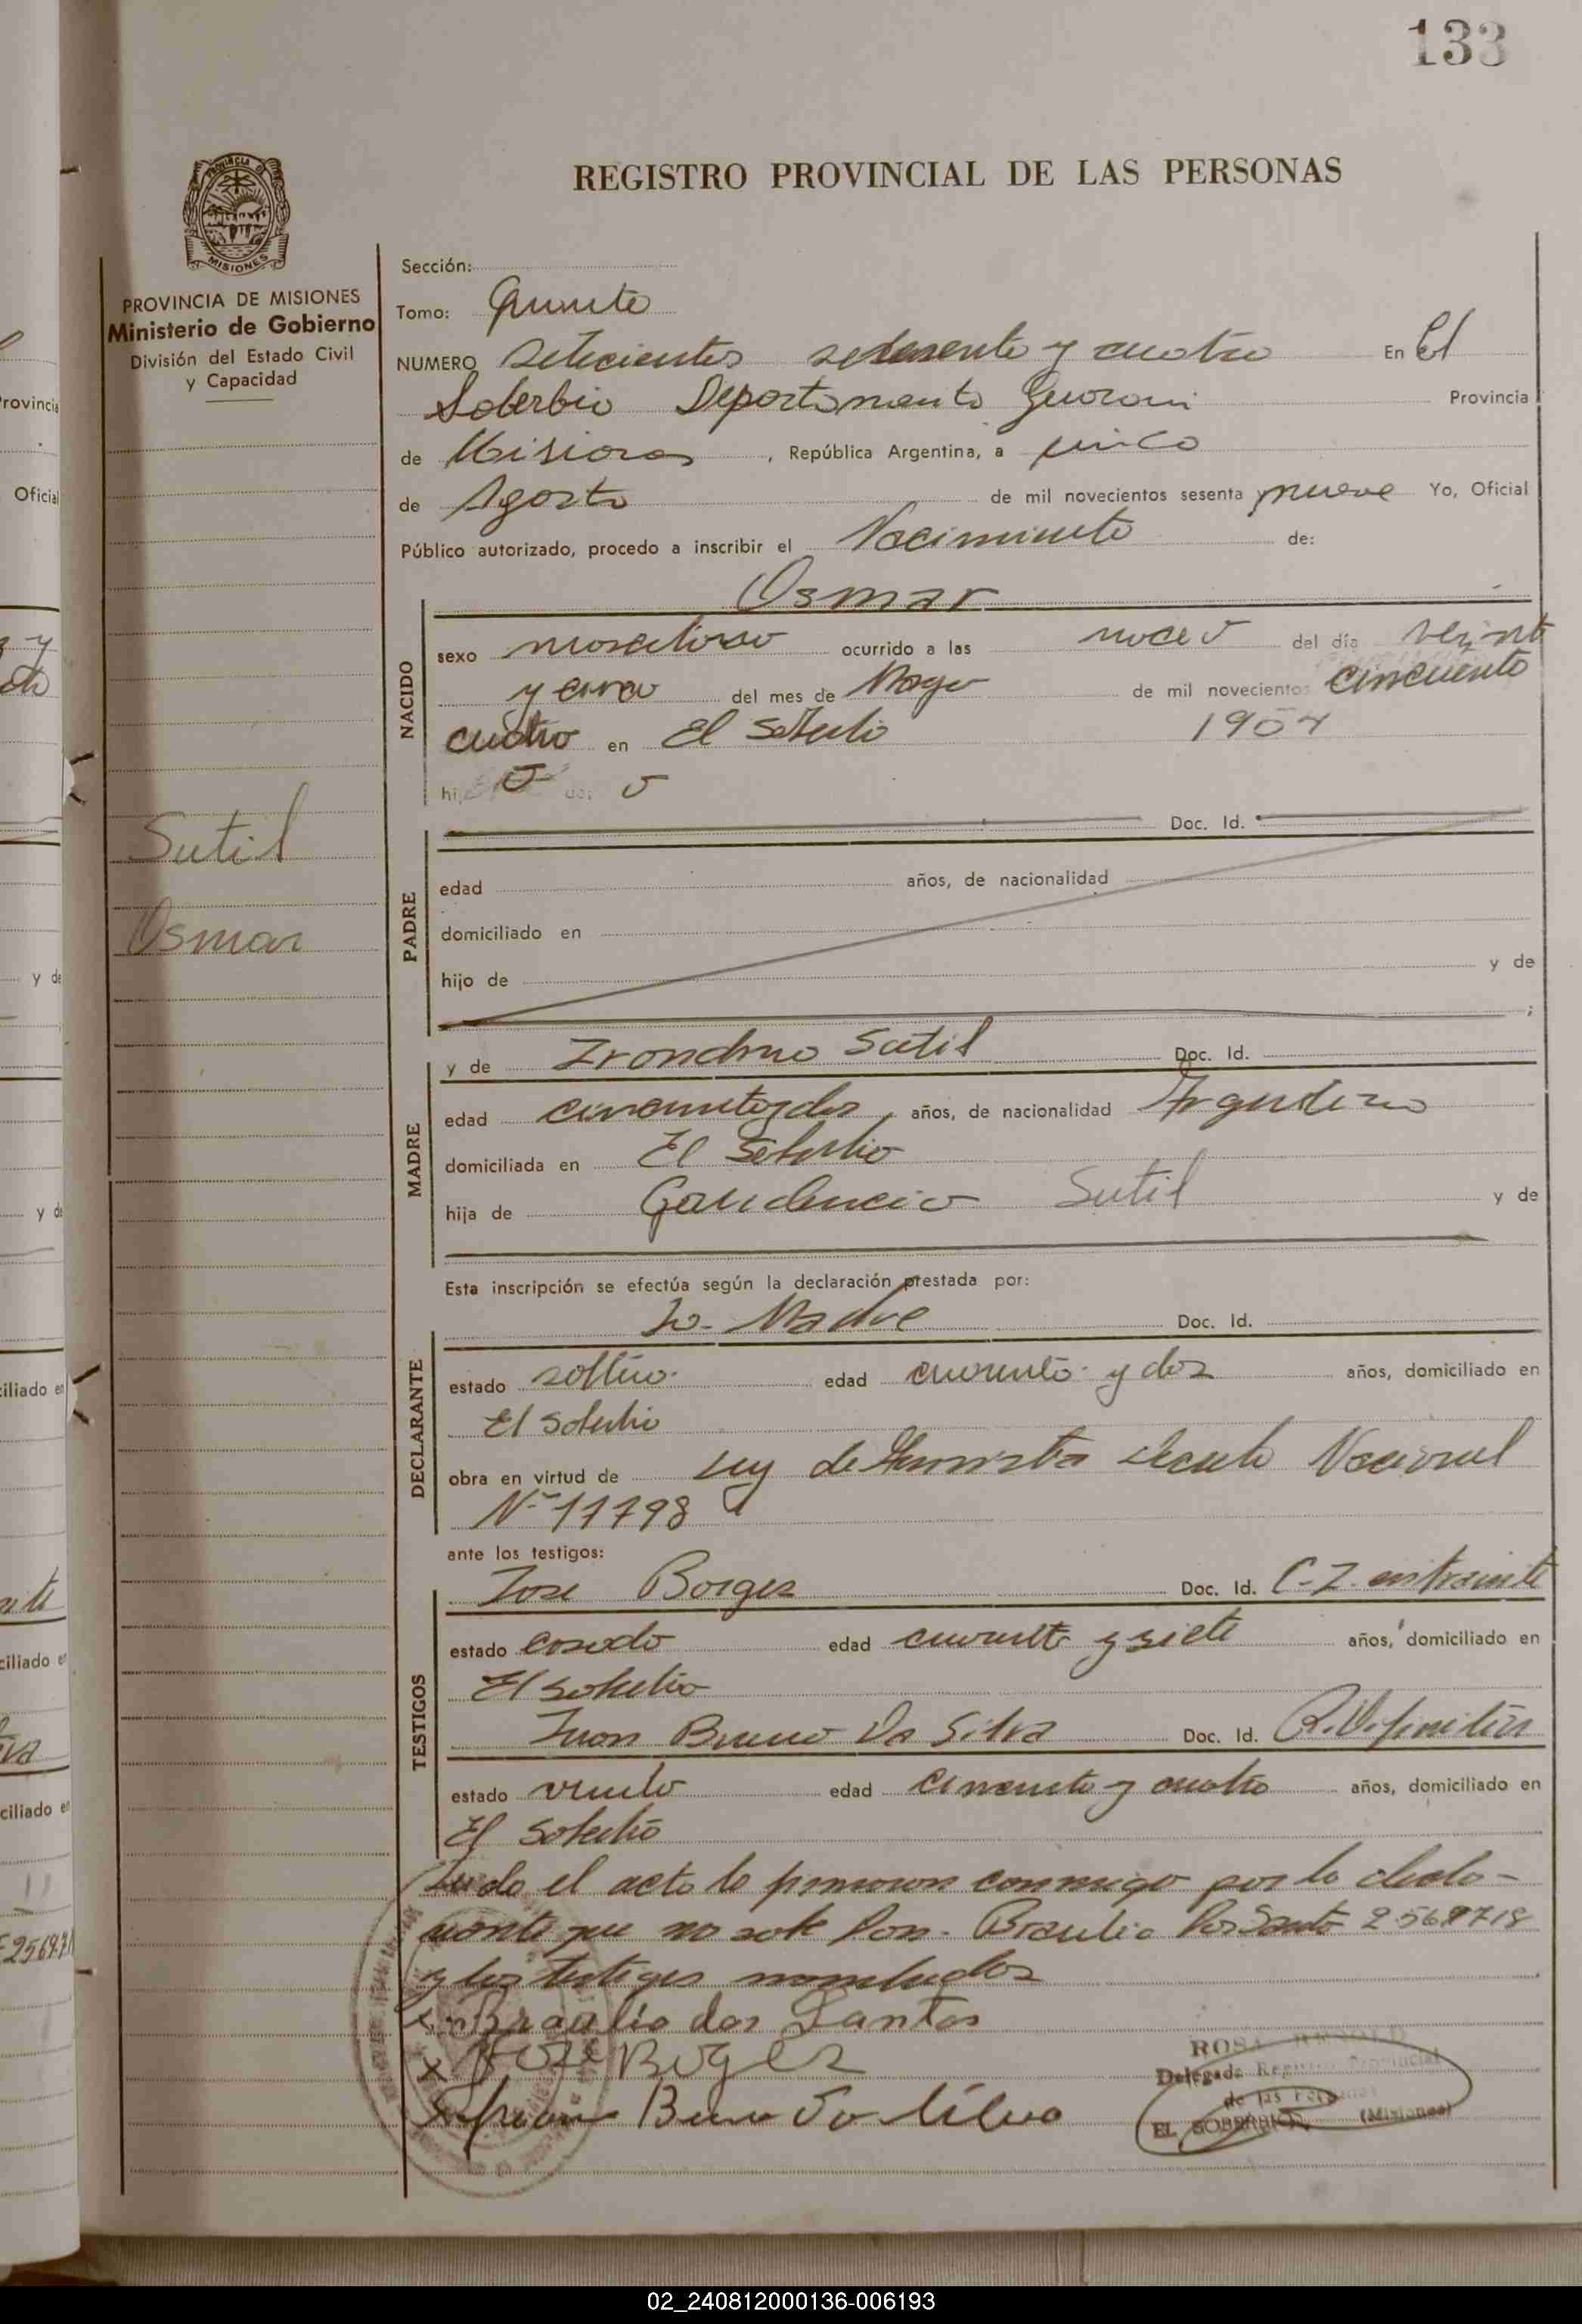 133
REGISTRO PROVINCIAL DE LAS PERSONAS
PROVINCIA DE MISIONES
Ministerio de Gobierno
División del Estado Civil
y Capacidad
Sutil
Osmar
Sección:
Tomo: Quinto
NUMERO Setecientos setenta y cuatro En El
Soberbio Departamento Guarani Provincia
de Misiones, República Argentina, a cinco
de Agosto de mil novecientos sesenta y nueve Yo, Oficial
Público autorizado, procedo a inscribir el Nacimiento de:
Osmar
NACIDO
sexo masculino ocurrido a las del día veinte
y cinco del mes de Mayo de mil novecientos cincuenta
cuatro en El Soberbio 1954
PADRE
Doc. Id.
edad años, de nacionalidad
domiciliado en
hijo de y de
MADRE
y de Sutil Doc. Id.
edad años, de nacionalidad Argentina
domiciliada en El Soberbio
hija de Gaudencio Sutil y de
Esta inscripción se efectúa según la declaración prestada por:
La Madre Doc. Id.
DECLARANTE
estado soltera edad y dos años, domiciliado en
El Soberbio
obra en virtud de Ley de Amnistia Decreto Nacional
Nº 11798
ante los testigos:
TESTIGOS
Jose Borges Doc. Id. C.I. en tramite
estado casado edad cuarenta y siete años, domiciliado en
El Soberbio
Juan Bueno Da Silva Doc. Id.
estado viudo edad cincuenta y cuatro años, domiciliado en
El Soberbio
Leida el acta la firmaron conmigo por la decla-
rante que no sabe Don. Braulio Dos Santos
y los testigos nombrados
x Braulio dos Santos
x José Boges
x Juan Bueno Da Silva
ROSA
Delegada Registro Provincial
de las Personas
EL SOBERBIO (Misiones)
02_240812000136-006193